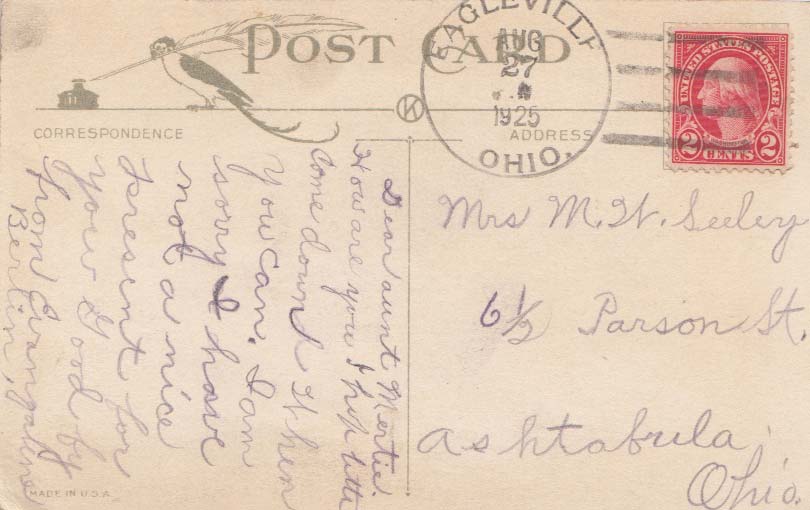 POST CARD
CORRESPONDENCE
ADDRESS
EAGLEVILLE
AUG
27
1925
OHIO.
UNITED STATES POSTAGE
2 CENTS 2
Dear aunt Mertie.
How are you I hop
Come down When
You can. I am
sorry I have
not a nice
Present for
you Good by
from Evangalene
Berlin.
Mrs M. W. Seeley
6½ Parson St.
Ashtabula,
Ohio.
MADE IN U.S.A.